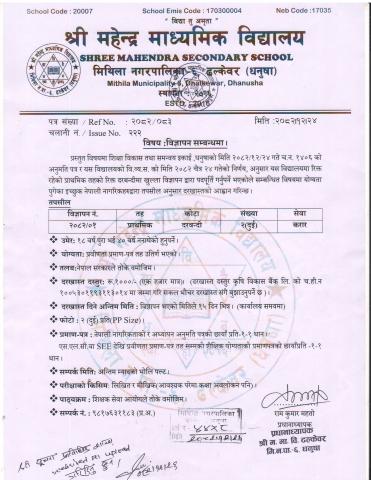 School Code : 20007 School Emie Code : 170300004 Neb Code :17035
" विद्या तु अमृता "
श्री महेन्द्र माध्यमिक विद्यालय
SHREE MAHENDRA SECONDARY SCHOOL
मिथिला नगरपालिका-६, ढल्केवर (धनुषा)
Mithila Municipality-6, Dhalkewar, Dhanusha
ESTD. 2016
पत्र संख्या / Ref No. : २०८२/०८३ मिति :२०८२/१२/२४
चलानी नं. / Issue No. २२२
विषय :विज्ञापन सम्बन्धमा।
प्रस्तुत विषयमा शिक्षा विकास तथा समन्वय इकाई ,धनुषाको मिति २०८२/१२/२४ गते च.न. १४०६ को
अनुमति पत्र र यस विद्यालयको वि.व्य.स. को मिति २०८२ चैत्र २४ गतेको निर्णय, अनुसार यस विद्यालयमा रिक्त
रहेको प्राथमिक तहको रिक्त दरबन्दीमा खुल्ला विज्ञापन द्वारा पदपूर्ति गर्नुपर्ने भएकोले सम्बन्धित विषयमा योग्यता
पुगेका इच्छुक नेपाली नागरिकहरुद्वारा तपसील अनुसार दरखास्तको आह्वान गरिन्छ।
तपसील
विज्ञापन नं. तह कोटा संख्या सेवा
२०८२/०१ प्राथमिक दरवन्दी २(दुई) करार
❖ उमेर: १८ वर्ष पुरा भई ४० वर्ष ननाघेको हुनुपर्ने।
❖ योग्यता: प्रवीणता प्रमाण-पत्र तह उत्तिर्ण भएको।
❖ तलब:नेपाल सरकारले तोके वमोजिम।
❖ दरखास्त दस्तुर: रू.१०००/- (एक हजार मात्र)। (दरखास्त दस्तुर कृषि विकास बैंक लि. को च.ही.न
मा जम्मा गरि सक्कल भौचर दरखास्त संगै बुझाउनुपर्ने छ।)
❖ दरखास्त दिने अन्तिम मिति : विज्ञापन भएको मितिले १५ दिन भित्र। (कार्यालय समयमा)
❖ फोटो : २ (दुई) प्रति(PP Size)।
❖ प्रमाण-पत्र : नेपाली नागरिकताको र अध्यापन अनुमति पत्रको छायाँ प्रति-१-१ थान।
एस.एल.सी.वा SEE देखि प्रवीणता प्रमाण-पत्र तह सम्मको शैक्षिक योग्यताको प्रमाणपत्रको छायाँप्रति -१-१
थान।
❖ सम्पर्क मिति: अन्तिम म्यादको भोलि पल्ट।
❖ परीक्षाको किसिम: लिखित र मौखिक(आवश्यक परेमा कक्षा अवलोकन पनि)।
❖ पाठ्यक्रम : शिक्षक सेवा आयोगले तोके वमोजिम।
❖ सम्पर्क नं. : ९८१७६३११८३ (प्र.अ.)
राम कुमार महतो
प्रधानाध्यापक
प्रधानाध्यापक
श्री म. मा. वि. ढल्केवर
मि.न.पा.-६, धनुषा